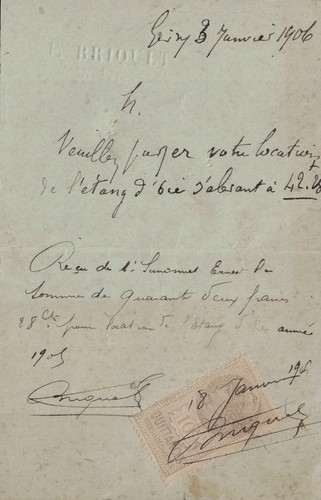 E. BRIQUET
3 Janvier 1906
M.
Veuillez payer votre location
de l'étang d' s'élevant à 42.28
Reçu de Mr Ernest la
somme de quarante deux francs
28 cts pour location de l'étang d' année
1905
Briquet
18 Janvier 190
10c
QUITTANCES
Briquet